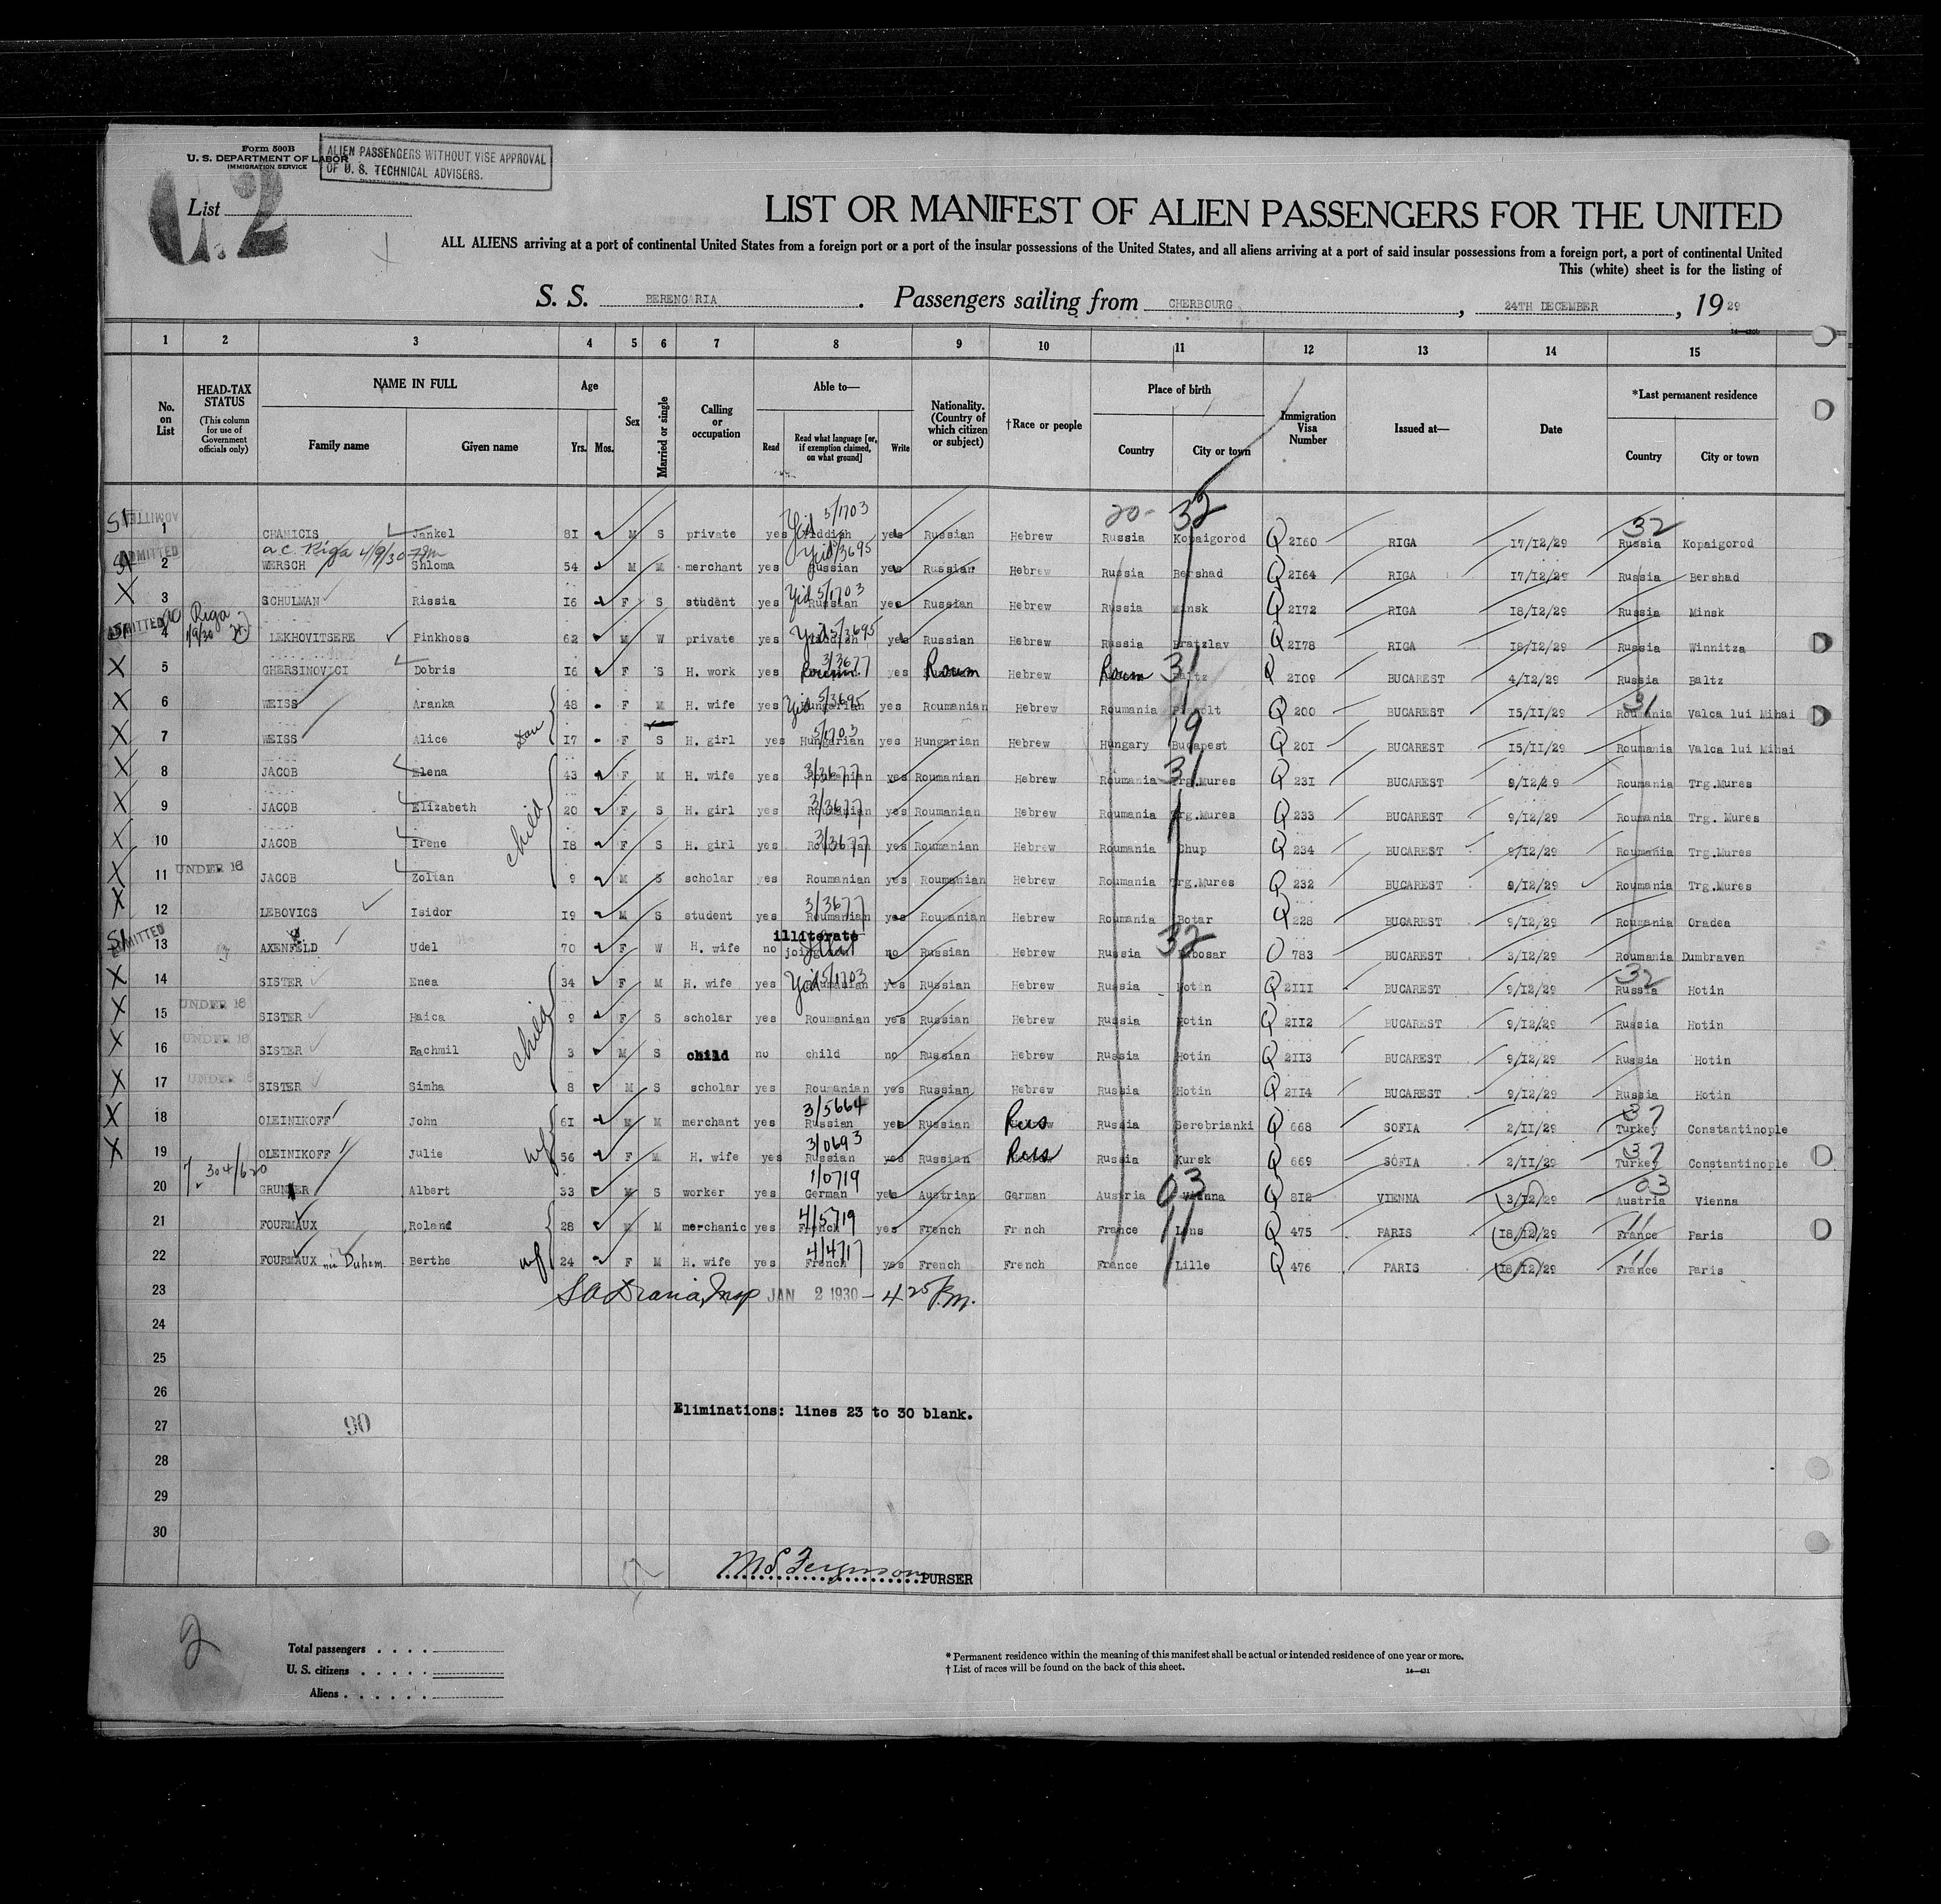 Form 500B
U. S. DEPARTMENT OF LABOR
IMMIGRATION SERVICE
ALIEN PASSENGERS WITHOUT VISE APPROVAL
OF U. S. TECHNICAL ADVISERS.
List
LIST OR MANIFEST OF ALIEN PASSENGERS FOR THE UNITED
ALL ALIENS arriving at a port of continental United States from a foreign port or a port of the insular possessions of the United States, and all aliens arriving at a port of said insular possessions from a foreign port, a port of continental United
This (white) sheet is for the listing of
S. S. BERENGARIA. Passengers sailing from CHERBOURG, 24TH DECEMBER, 19 29
1 2 3 4 5 6 7 8 9 10 11 12 13 14 15
No. on List
HEAD-TAX STATUS
(This column for use of Government officials only)
NAME IN FULL
Family name Given name
Age
Yrs. Mos.
Sex
Married or single
Calling or occupation
Able to—
Read
Read what language [or, if exemption claimed, on what ground]
Write
Nationality. (Country of which citizen or subject)
†Race or people
Place of birth
Country City or town
Immigration Visa Number
Issued at—
Date
*Last permanent residence
Country City or town
20- 32 32
SI ADMITTED 1 CHANICIS Jankel 81 M S private yes Yiddish Yid 5/1703 yes Russian Hebrew Russia Kopaigorod Q 2160 RIGA 17/12/29 Russia Kopaigorod
a.c. Riga 4/9/30
ADMITTED 2 WERSCH Shloma 54 M M merchant yes Russian Yid 5/3695 yes Russian Hebrew Russia Bershad Q 2164 RIGA 17/12/29 Russia Bershad
X 3 SCHULMAN Rissia 16 F S student yes Russian Yid 5/1703 yes Russian Hebrew Russia Minsk Q 2172 RIGA 18/12/29 Russia Minsk
ADMITTED Riga 1/9/30 4 LEKHOVITSERE Pinkhoss 62 M W private yes Yiddish Yid 5/3695 yes Russian Hebrew Russia Bratzlav Q 2178 RIGA 18/12/29 Russia Winnitza
X 5 GHERSINOVICI Dobris 16 F S H. work yes 3/3677 Roum yes Roum Hebrew Roum 31 Baltz Q 2109 BUCAREST 4/12/29 Russia Baltz
X 6 WEISS Aranka 48 F M H. wife yes Hungarian Yid 5/3695 yes Roumanian Hebrew Roumania Q 200 BUCAREST 15/11/29 Roumania 31 Valca lui Mihai
X 7 WEISS Alice Dau 17 F S H. girl yes Hungarian 5/1703 yes Hungarian Hebrew Hungary 19 Budapest Q 201 BUCAREST 15/11/29 Roumania Valca lui Mihai
X 8 JACOB Elena 43 F M H. wife yes Roumanian 3/3677 yes Roumanian Hebrew Roumania 31 Trg.Mures Q 231 BUCAREST 8/12/29 Roumania Trg.Mures
X 9 JACOB Elizabeth child 20 F S H. girl yes Roumanian 3/3677 yes Roumanian Hebrew Roumania Trg.Mures Q 233 BUCAREST 9/12/29 Roumania Trg. Mures
X 10 JACOB Irene 18 F S H. girl yes Roumanian 3/3677 yes Roumanian Hebrew Roumania Chup Q 234 BUCAREST 9/12/29 Roumania Trg.Mures
X 11 UNDER 16 JACOB Zoltan 9 M S scholar yes Roumanian yes Roumanian Hebrew Roumania Trg.Mures Q 232 BUCAREST 8/12/29 Roumania Trg.Mures
X 12 LEBOVICS Isidor 19 M S student yes Roumanian 3/3677 yes Roumanian Hebrew Roumania Botar Q 228 BUCAREST 9/12/29 Roumania Oradea
SI ADMITTED 13 AXENFELD Udel 70 F W H. wife no illiterate no Russian Hebrew Russia 32 Q 783 BUCAREST 3/12/29 Roumania Dumbraven
X 14 SISTER Enea 34 F M H. wife yes Roumanian Yid 5/1703 yes Russian Hebrew Russia Hotin Q 2111 BUCAREST 9/12/29 32 Russia Hotin
X 15 UNDER 16 SISTER Haica child 9 F S scholar yes Roumanian yes Russian Hebrew Russia Hotin Q 2112 BUCAREST 9/12/29 Russia Hotin
X 16 UNDER 16 SISTER Rachmil 3 M S child no child no Russian Hebrew Russia Hotin Q 2113 BUCAREST 9/12/29 Russia Hotin
X 17 UNDER 16 SISTER Simha 8 M S scholar yes Roumanian yes Russian Hebrew Russia Hotin Q 2114 BUCAREST 9/12/29 Russia Hotin
X 18 OLEINIKOFF John 61 M M merchant yes Russian 3/5664 yes Russian Rus Russia Serebrianki Q 668 SOFIA 2/11/29 37 Turkey Constantinople
X 19 OLEINIKOFF Julie wf 56 F M H. wife yes Russian 3/0693 yes Russian Rus Russia Kursk Q 669 SOFIA 2/11/29 37 Turkey Constantinople
304/620 20 GRUNDER Albert 33 M S worker yes German 1/0719 yes Austrian German Austria 03 Vienna Q 812 VIENNA 3/12/29 03 Austria Vienna
21 FOURMAUX Roland 28 M M merchanic yes French 4/5719 yes French French France 11 Lens Q 475 PARIS 18/12/29 11 France Paris
22 FOURMAUX née Duhem Berthe wf 24 F M H. wife yes French 4/4717 yes French French France Lille Q 476 PARIS 18/12/29 11 France Paris
23 Insp JAN 2 1930 - 4 25 P.M.
24
25
26
Eliminations: lines 23 to 30 blank.
27 90
28
29
30
M S Ferguson PURSER
2
Total passengers . . . .
U. S. citizens . . . . .
Aliens . . . . . .
* Permanent residence within the meaning of this manifest shall be actual or intended residence of one year or more.
† List of races will be found on the back of this sheet. 14—431